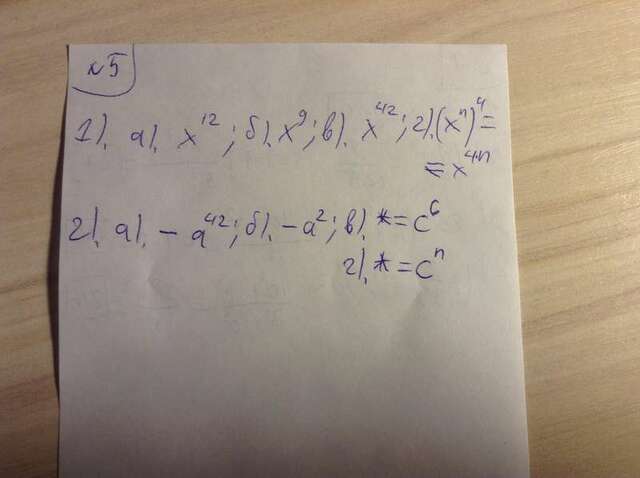 №5
1). а). x^12; б). x^9; в). x^42; г). (x^n)^4 =
= x^4n
2). а). - a^42; б). - a^2; в). * = c^6
г). * = c^n